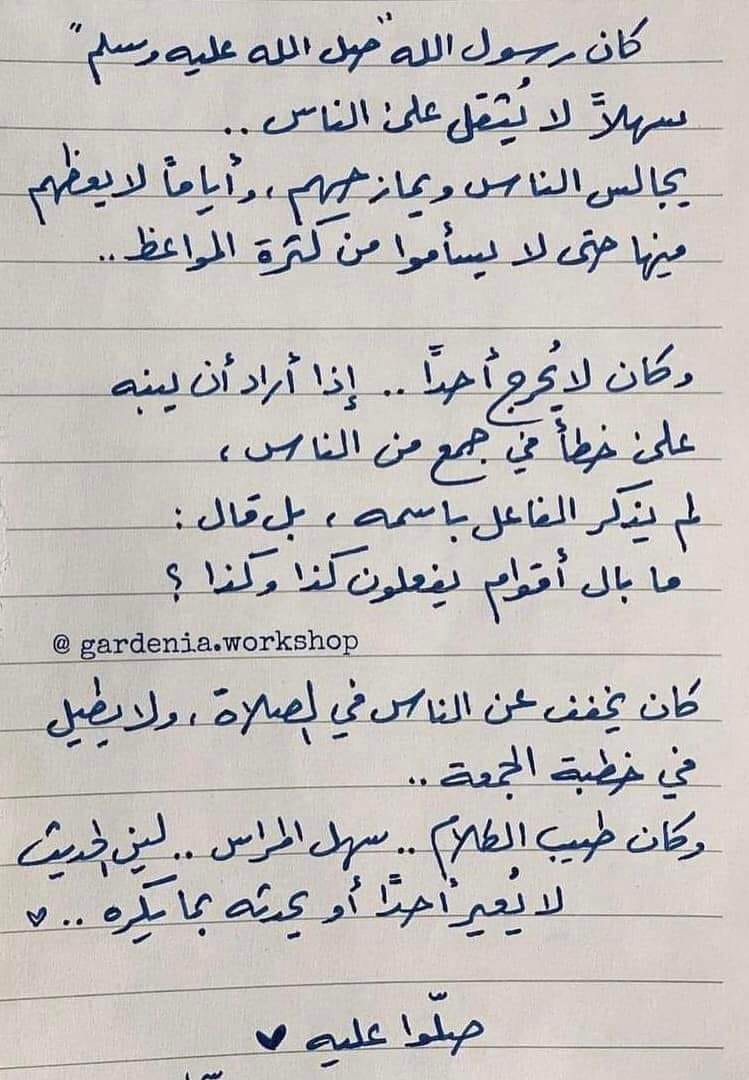 كان رسول الله "صلى الله عليه وسلم"
سهلاً لا يُثقل على الناس ..
يجالس الناس ويمازحهم ، وأياماً لا يعظهم
فيها حتى لا يسأموا من كثرة المواعظ ..
وكان لا يُحرج أحدًا .. إذا أراد أن ينبه
على خطأ في جمع من الناس ،
لم يذكر الفاعل باسمه ، بل قال :
ما بال أقوام يفعلون كذا وكذا ؟
@ gardenia.workshop
كان يخفف عن الناس في الصلاة ، ولا يطيل
في خطبة الجمعة ..
وكان طيب الكلام .. سهل المراس .. لين الحديث
لا يُعير أحدًا أو يحدثه بما يكره .. ♥
صلّوا عليه ♥